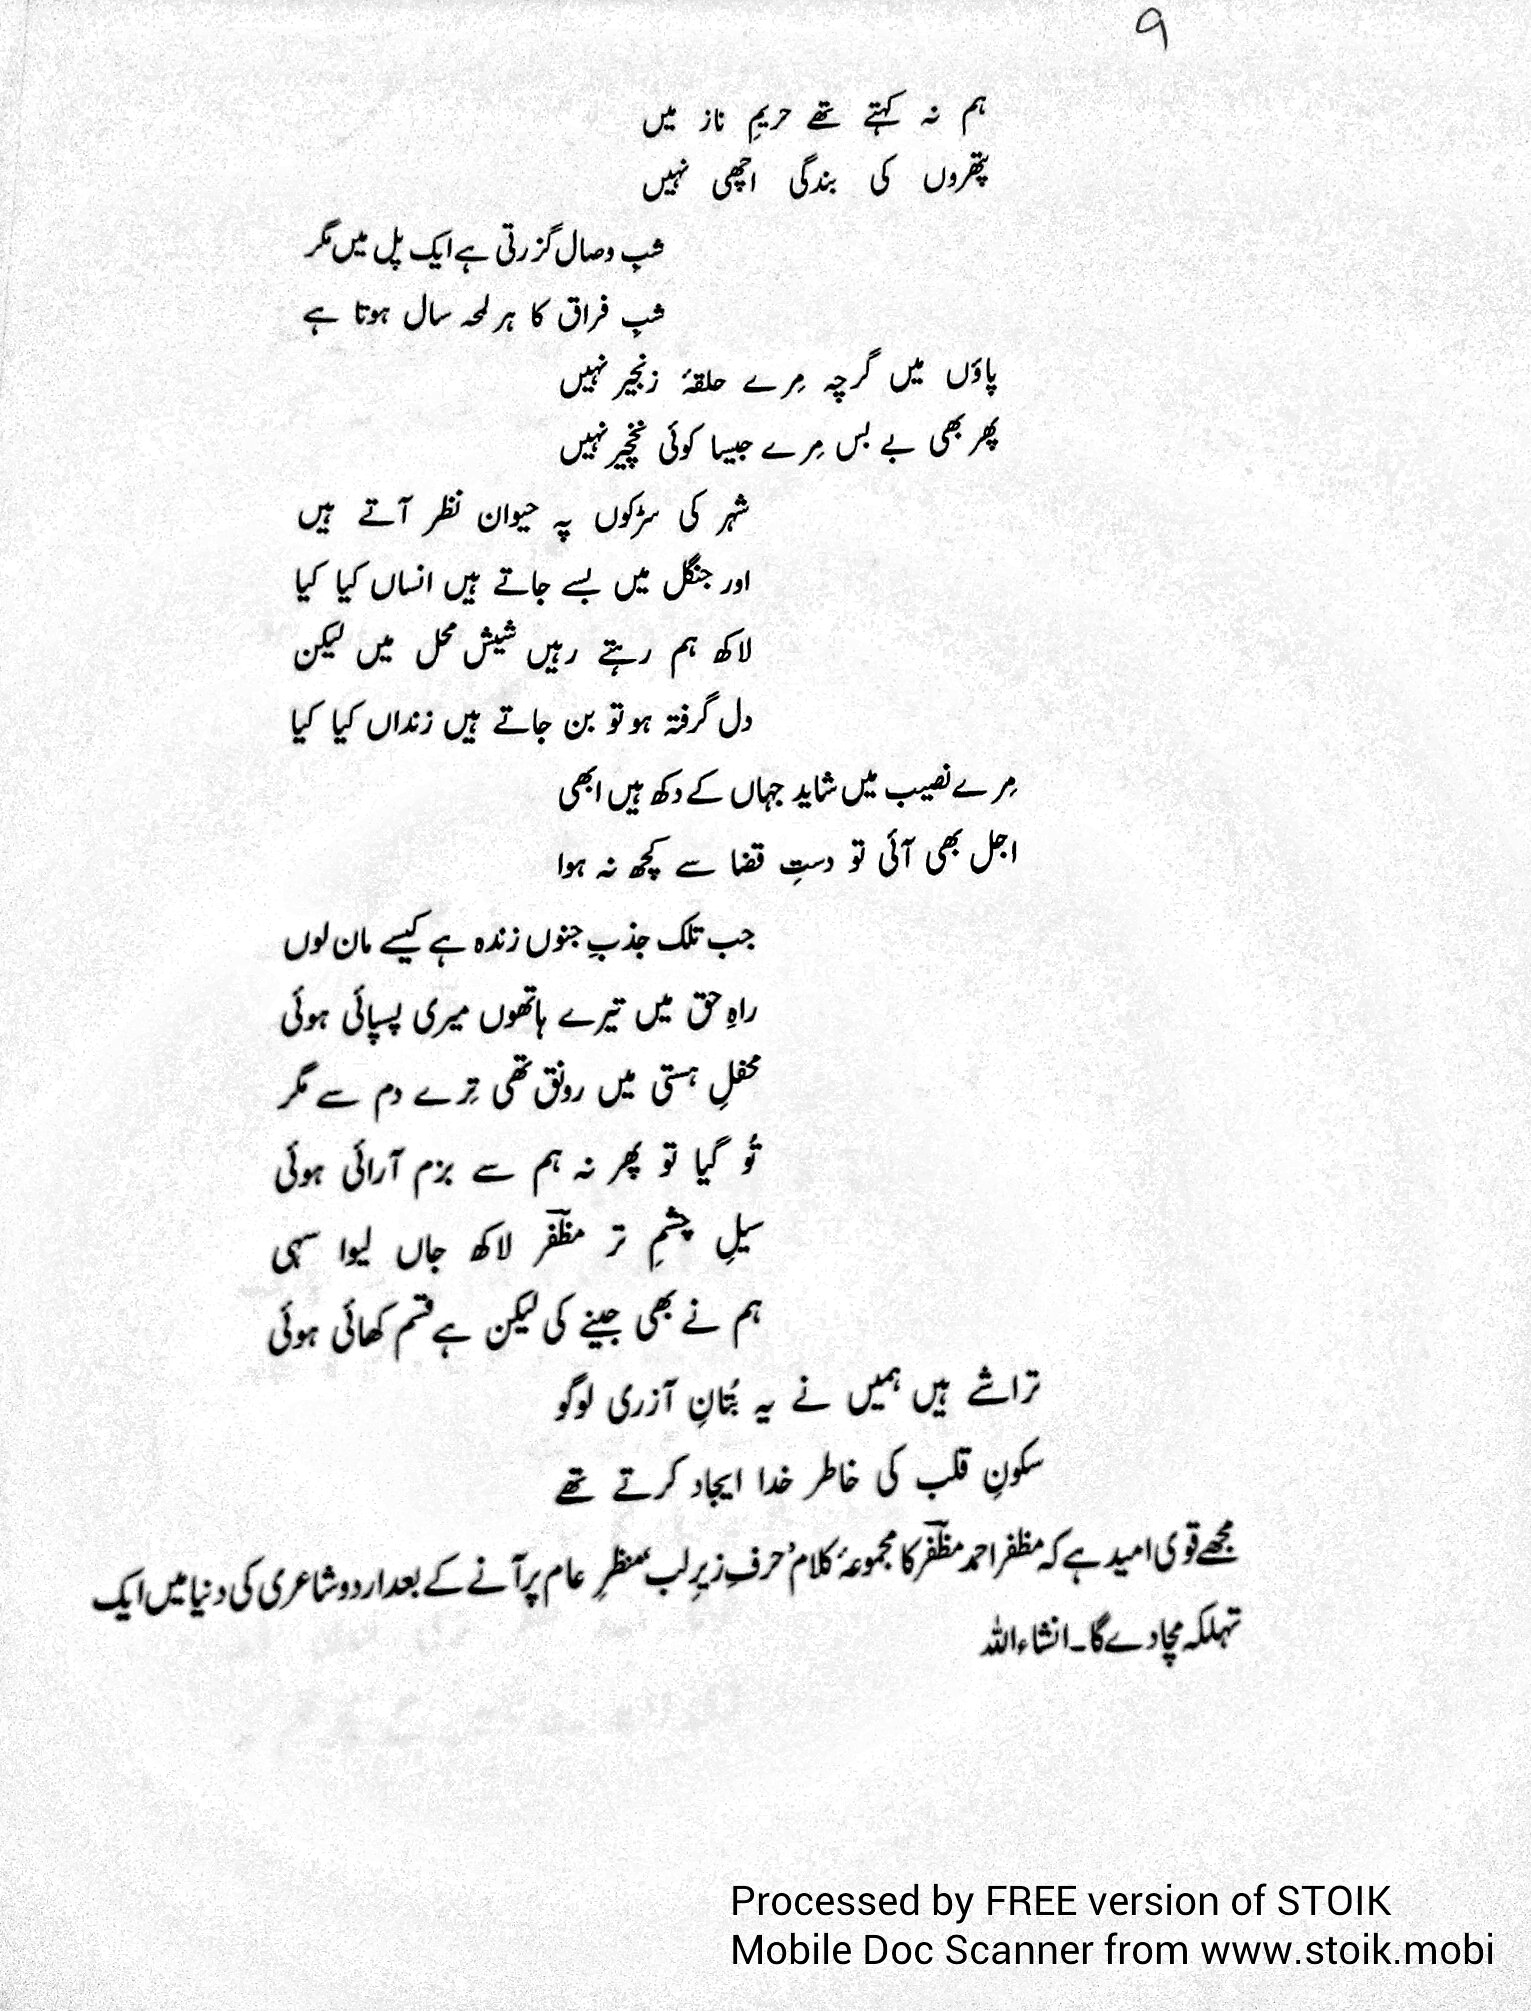 ۹
ہم نہ کہتے تھے حریمِ ناز میں
پتھروں کی بندگی اچھی نہیں
شبِ وصال گزرتی ہے ایک پل میں مگر
شبِ فراق کا ہر لمحہ سال ہوتا ہے
پاؤں میں گرچہ مِرے حلقۂ زنجیر نہیں
پھر بھی بے بس مِرے جیسا کوئی نخچیر نہیں
شہر کی سڑکوں پہ حیوان نظر آتے ہیں
اور جنگل میں بسے جاتے ہیں انساں کیا کیا
لاکھ ہم رہتے رہیں شیش محل میں لیکن
دل گرفتہ ہو تو بن جاتے ہیں زنداں کیا کیا
مِرے نصیب میں شاید جہاں کے دکھ ہیں ابھی
اجل بھی آئی تو دستِ قضا سے کچھ نہ ہوا
جب تلک جذبِ جنوں زندہ ہے کیسے مان لوں
راہِ حق میں تیرے ہاتھوں میری پسپائی ہوئی
محفلِ ہستی میں رونق تھی تِرے دم سے مگر
تُو گیا تو پھر نہ ہم سے بزم آرائی ہوئی
سیلِ چشمِ تر مظفرؔ لاکھ جاں لیوا سہی
ہم نے بھی جینے کی لیکن ہے قسم کھائی ہوئی
تراشے ہیں ہمیں نے یہ بُتانِ آزری لوگو
سکونِ قلب کی خاطر خدا ایجاد کرتے تھے
مجھے قوی امید ہے کہ مظفر احمد مظفرؔ کا مجموعۂ کلام ’حرفِ زیرِ لب‘ منظرِ عام پر آنے کے بعد اردو شاعری کی دنیا میں ایک
تہلکہ مچا دے گا۔ انشاء اللہ
Processed by FREE version of STOIK
Mobile Doc Scanner from www.stoik.mobi